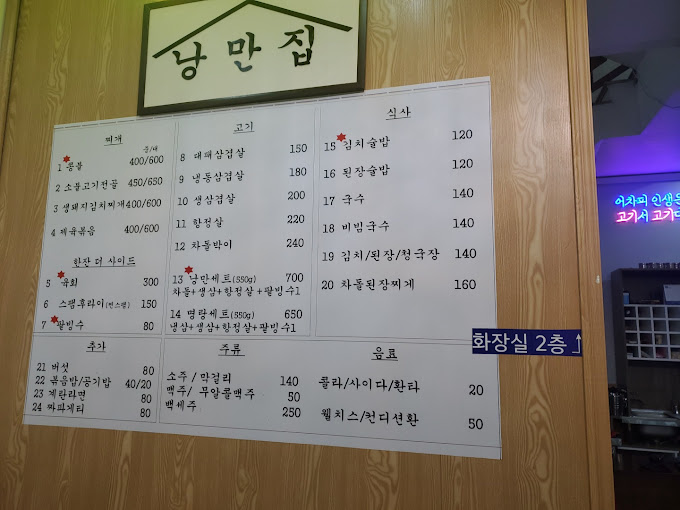 낭만집
찌개
중/대
1 콩불 400/600
2 소불고기전골 450/650
3 생돼지김치찌개 400/600
4 제육볶음 400/600
한잔 더 사이드
5 육회 300
6 스팸후라이(캔스팸) 150
7 팥빙수 80
고기
8 대패삼겹살 150
9 냉동삼겹살 180
10 생삼겹살 200
11 항정살 220
12 차돌박이 240
13 낭만세트(550g) 700
차돌+생삼+항정살+팥빙수1
14 명랑세트(550g) 650
냉삼+생삼+항정살+팥빙수1
식사
15 김치술밥 120
16 된장술밥 120
17 국수 140
18 비빔국수 140
19 김치/된장/청국장 140
20 차돌된장찌개 160
추가
21 버섯 80
22 볶음밥/공기밥 40/20
23 계란라면 80
24 짜파게티 80
주류
소주/막걸리 140
맥주/무알콜맥주 50
백세주 250
음료
콜라/사이다/환타 20
웰치스/컨디션환 50
화장실 2층↑
어차피 인생은
고기서 고기다